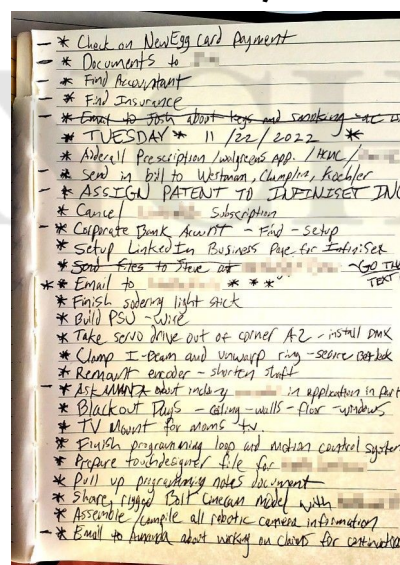 - * Check on NewEgg Card Payment
- * Documents to
- * Find Accountant
- * Find Insurance
- * Email to Josh about keys and smoking - AC
- * TUESDAY * 11/22/2022 *
* Aderall Prescription / walgreens app. / HCMC /
- * Send in bill to Westman, Champlin, Koehler
- * ASSIGN PATENT TO INFINISET INC
* Cancel Subscription
* Corporate Bank Account - Find - setup
* Setup LinkedIn Business Page for InfiniSet
* Send files to Steve at - GO TH
TEXT
* * * Email to * * *
* Finish sodering light stick
* Build PSU - wire
* Take servo drive out of corner A2 - install DMX
* Clamp I-Beam and unwarp ring - secure
* Remount encoder - shorten shaft
- * Ask AMANDA about in application in part
* Blackout Days - ceiling - walls - floor - windows
* TV Mount for moms tv.
* Finish programming loop and motion control system
* Prepare touchdesigner file for
* Pull up programming notes document
* Share rigged Bolt Cinecam model with
* Assemble / compile all robotic camera information
- * Email to Amanda about working on claims for continuation